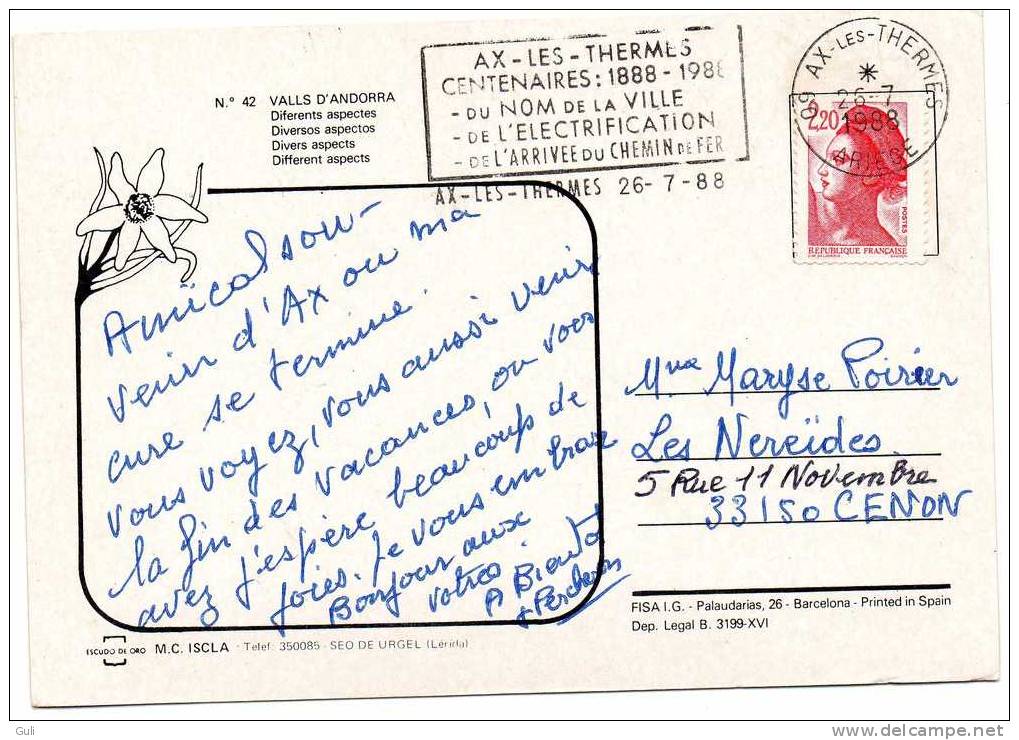 AX-LES-THERMES
CENTENAIRES: 1888-198
- DU NOM DE LA VILLE
- DE L'ELECTRIFICATION
- DE L'ARRIVEE DU CHEMIN DE FER
AX-LES-THERMES 26-7-88
09 AX-LES-THERMES
26-7
1988
ARIEGE
2,20
POSTES
REPUBLIQUE FRANÇAISE
N.º 42 VALLS D'ANDORRA
Diferents aspectes
Diversos aspectos
Divers aspects
Different aspects
Amical sou-
venir d'Ax ou ma
cure se termine.
Vous voyez, vous aussi venir
la fin des vacances, ou vous
avez j'espère beaucoup de
joies. Je vous embrasse
Bonjour aux
votres
A Bientot
Mme Maryse Poirier
Les Nereïdes
5 Rue 11 Novembre
33150 CENON
FISA I.G. - Palaudarias, 26 - Barcelona - Printed in Spain
Dep. Legal B. 3199-XVI
ESCUDO DE ORO M.C. ISCLA - Telef. 350085 - SEO DE URGEL (Lérida)
Guli
www.delcampe.net